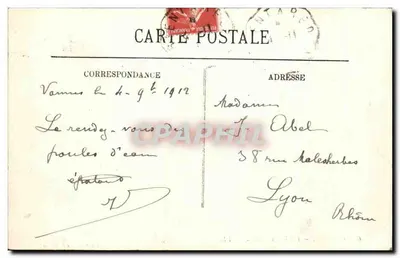 CARTE POSTALE
CORRESPONDANCE
Vannes le 4 9bre 1912
Le rendez-vous des
poules d'eau
ADRESSE
Madame
J. Abel
38 rue Malesherbes
Lyon
Rhône
CPARAMA